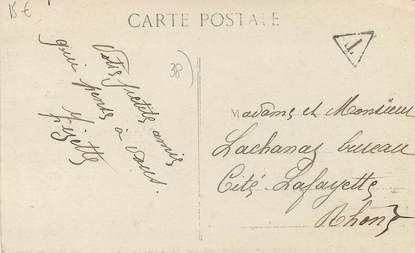 15 €
CARTE POSTALE
T
38
Votre petite amie
qui pense à vous.
Pizette
Madame et Monsieur
Lachanas bureau
Cité Lafayette
Rhône